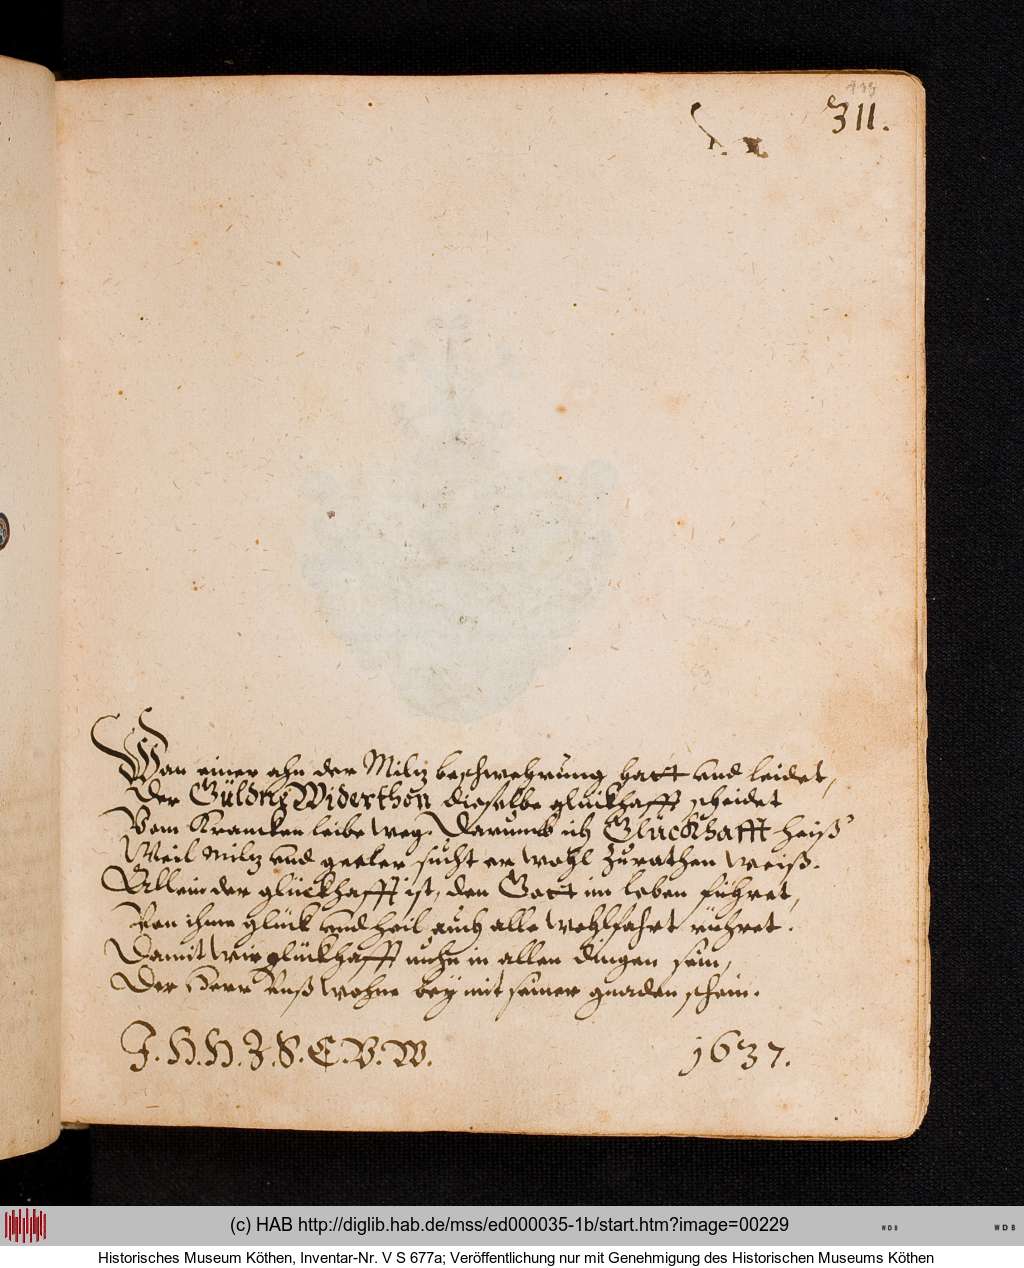 311.
Wan einer ahn der Miltz beschwehrung hatt und leidet,
Der Güldne Widerthon dieselbe glückhafft scheidet
Vom Krancken leibe weg. Darumb ich Glückhafft heiß
Weil Miltz und geeler sucht er wohl zurathen weiß.
Allein der glückhafft ist, den Gott im leben führet,
Von ihme glück und heil auch alle wohlfahrt rühret.
Damit wir glückhafft nuhn in allen dingen sein,
Der Herr Unß wohne bey mit seiner gnaden schein.
J. H. H. Z. S. E. V. W. 1637.
(c) HAB http://diglib.hab.de/mss/ed000035-1b/start.htm?image=00229
WDB
WDB
Historisches Museum Köthen, Inventar-Nr. V S 677a; Veröffentlichung nur mit Genehmigung des Historischen Museums Köthen